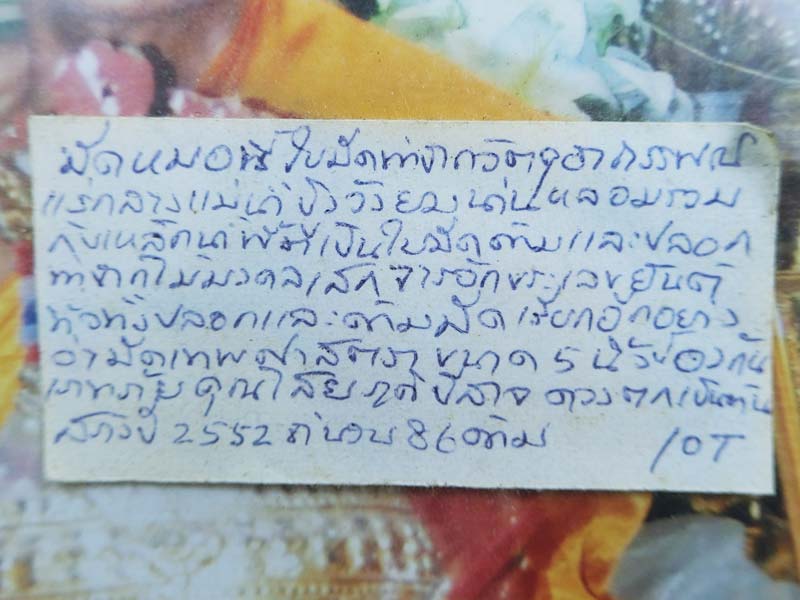 มีดหมอนี้ใบมีดทำจากวัตถุอาถรรพณ์
แร่กลางแม่น้ำปิงวังยมน่านหลอมรวม
กับเหล็กน้ำพี้ตีเป็นใบมีดด้ามและปลอก
ทำจากไม้มงคลเสกจารอักขระเลขยันต์
ทั่วทั้งปลอกและด้ามมีดเรียกอีกอย่าง
ว่ามีดเทพศาสตรา ขนาด 5 นิ้วป้องกัน
เภทภัยคุณไสยภูติปีศาจ ดวงตกเป็นต้น
สร้างปี 2552 จำนวน 86 ด้าม